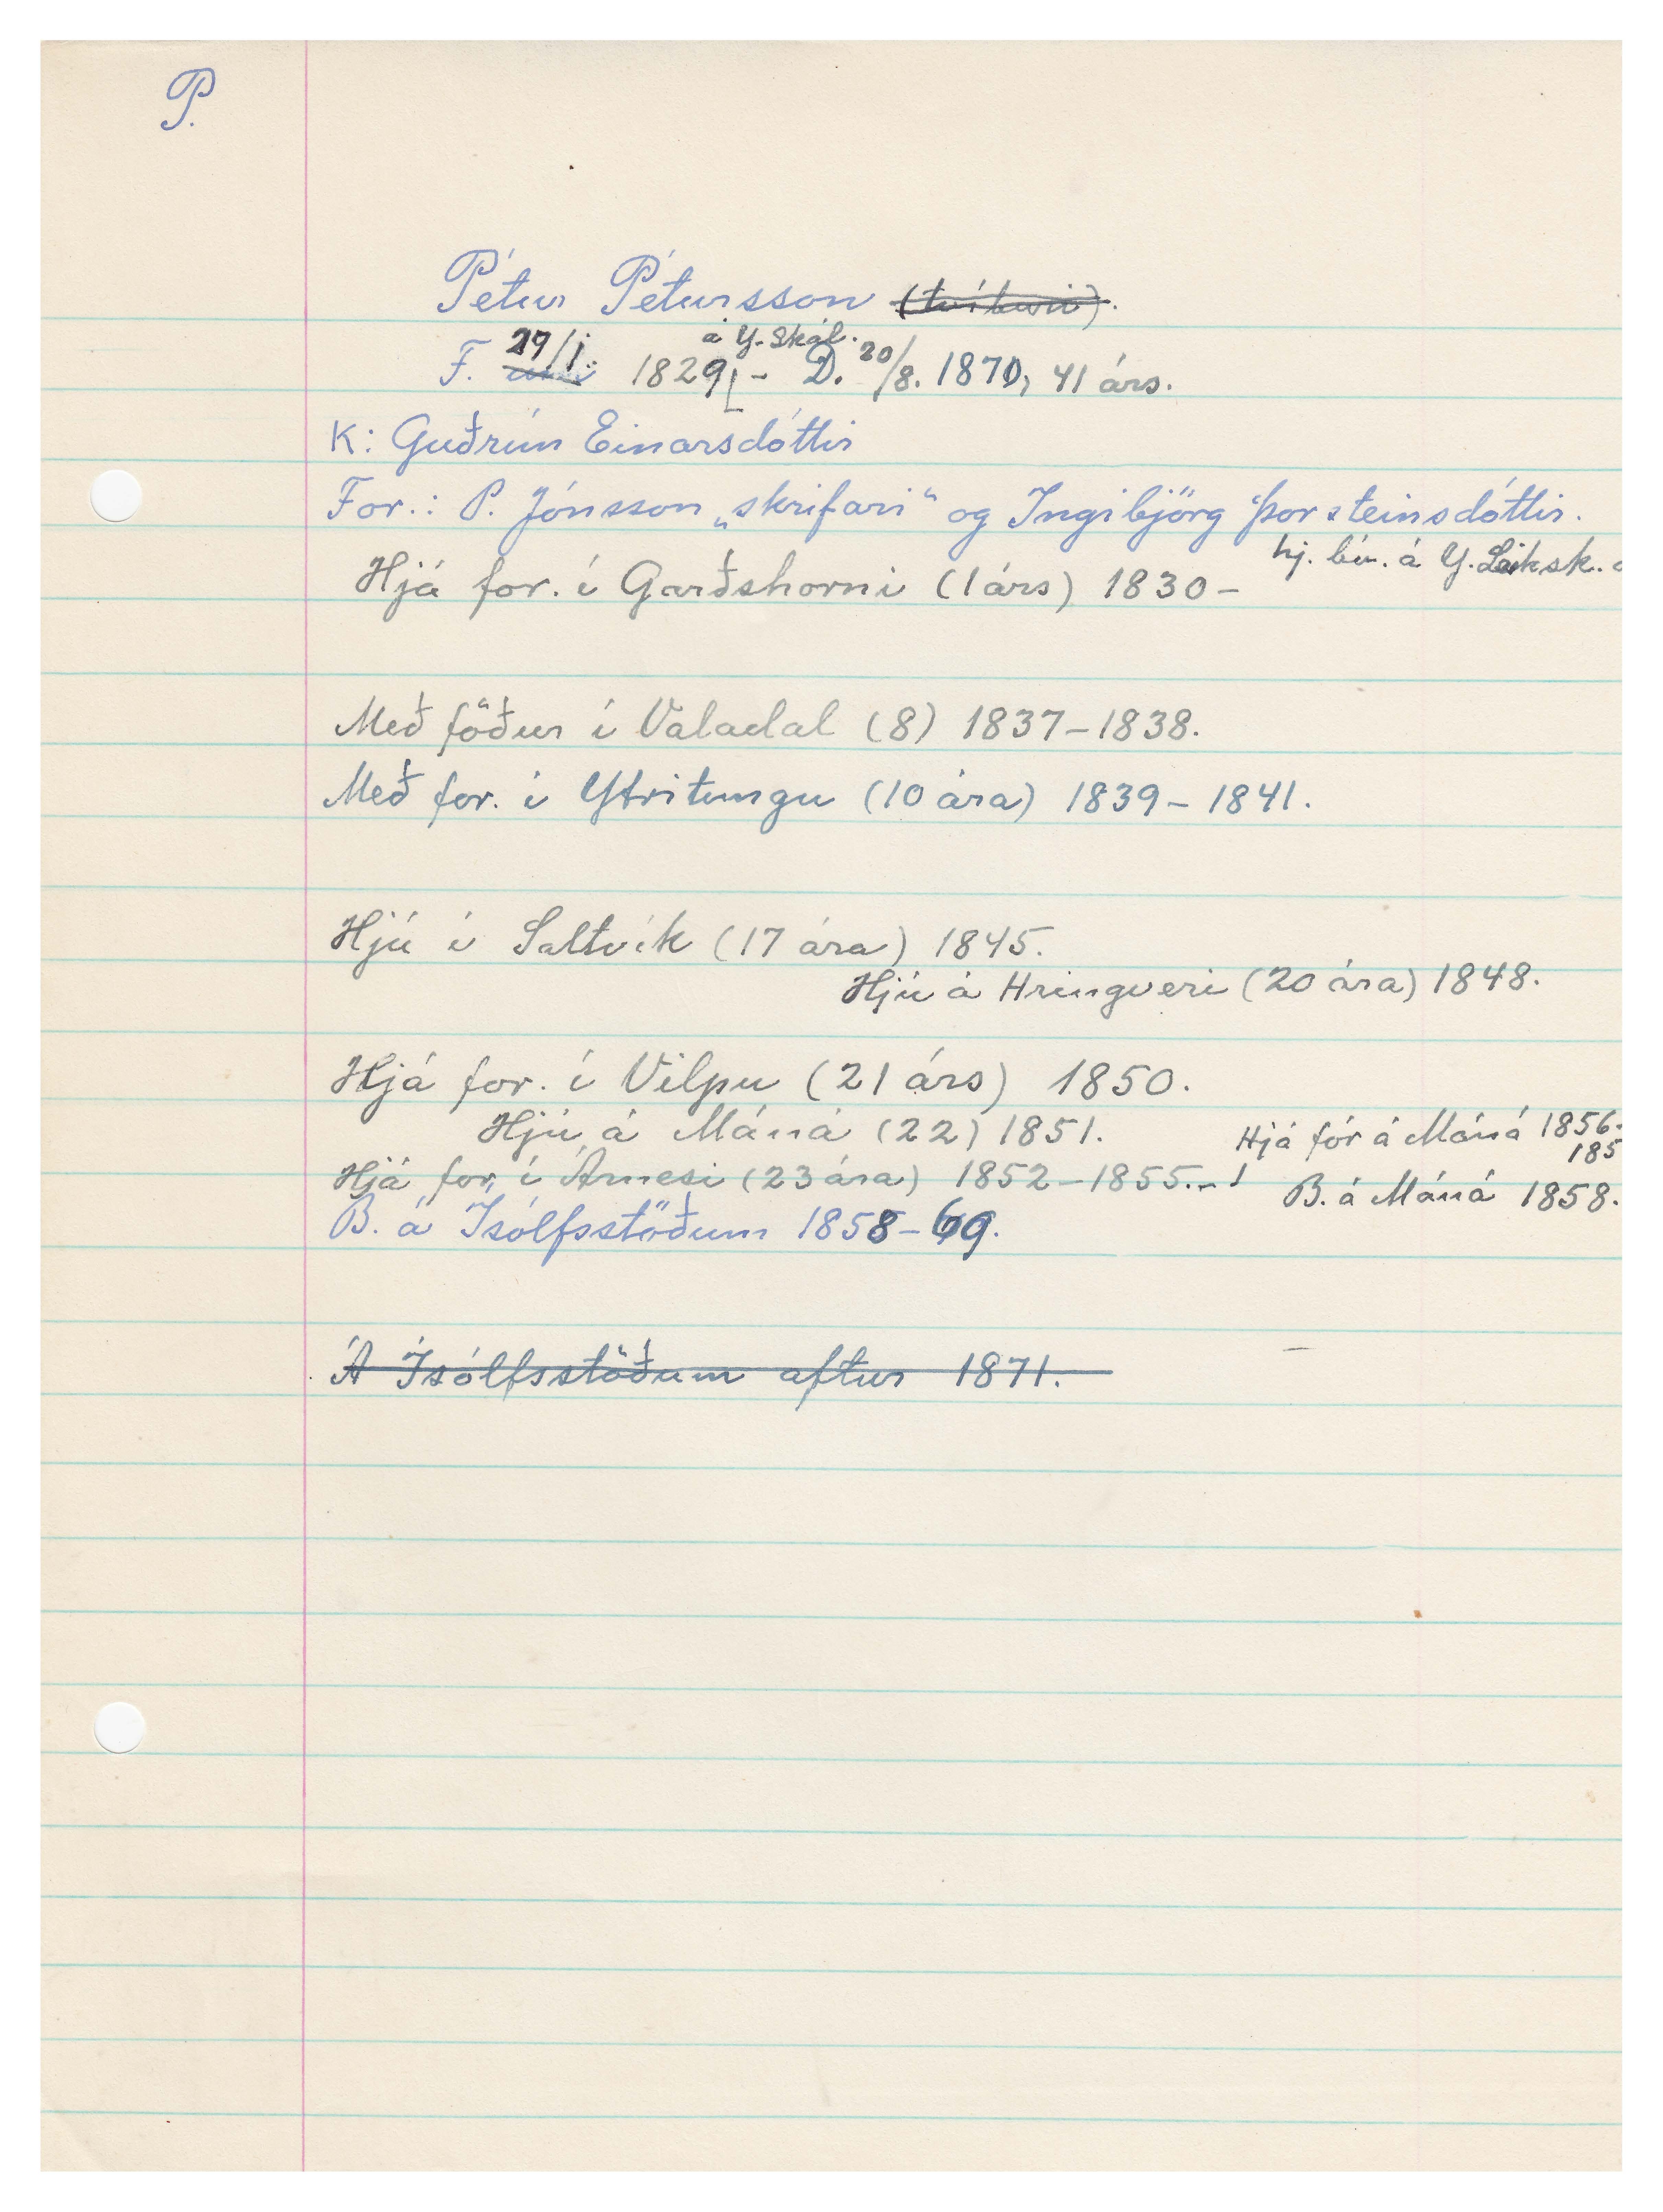 P.
Pétur Pétursson (tvíburi).
á Y-Skál.
F. 29/1. 1829, - D. 20/8. 1870, 41 árs.
K: Guðrún Einarsdóttir
For.: P. Jónsson „skrifari“ og Ingibjörg Þorsteinsdóttir.
hj. bú. á Y.
Hjá for. í Garðshorni (1 árs) 1830 -
Með föður í Valadal (8) 1837-1838.
Með for. í Ytritungu (10 ára) 1839-1841.
Hjú í Saltvík (17 ára) 1845.
Hjú á Hringveri (20 ára) 1848.
Hjá for. í Vilpu (21 árs) 1850.
Hjú á Máná (22) 1851.
Hjá for á Máná 1856.
185
Hjá for. í Árnesi (23 ára) 1852-1855.-
B. á Máná 1858.
B. á Ísólfsstöðum 1858-69.
Á Ísólfsstöðum aftur 1871.